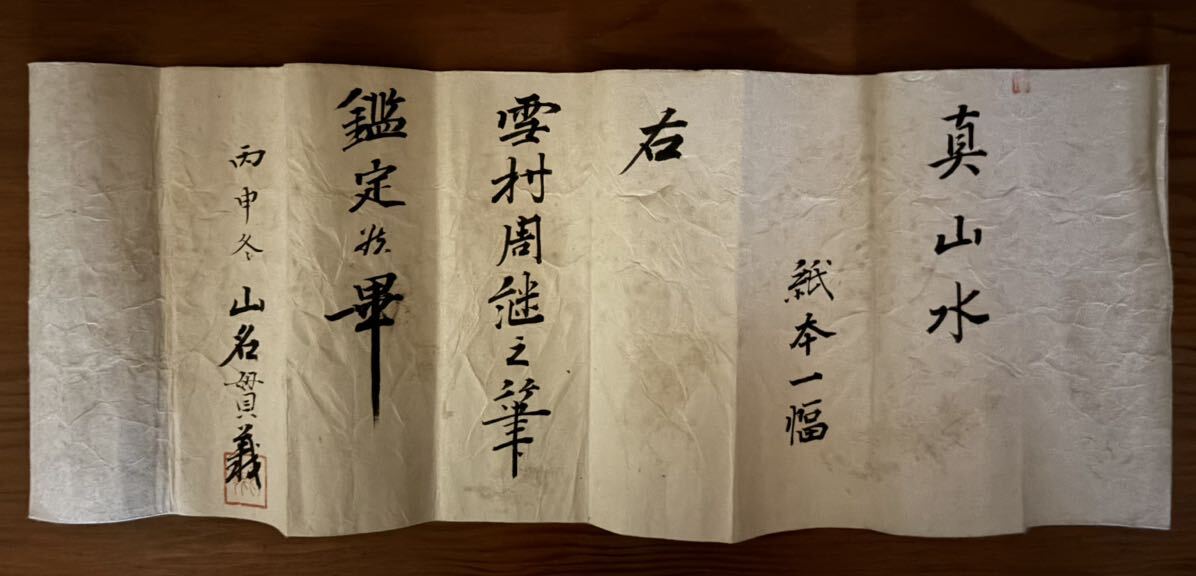 真山水
紙本一幅
右
雪村周継之筆
鑑定於畢
丙申冬 山名貫義